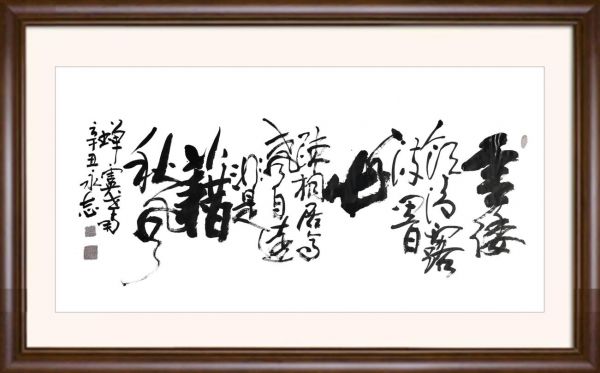 垂緌
飲清露
流響
出
疏桐居高
聲自遠
非是
藉
秋風
蝉虞世南
辛丑永志